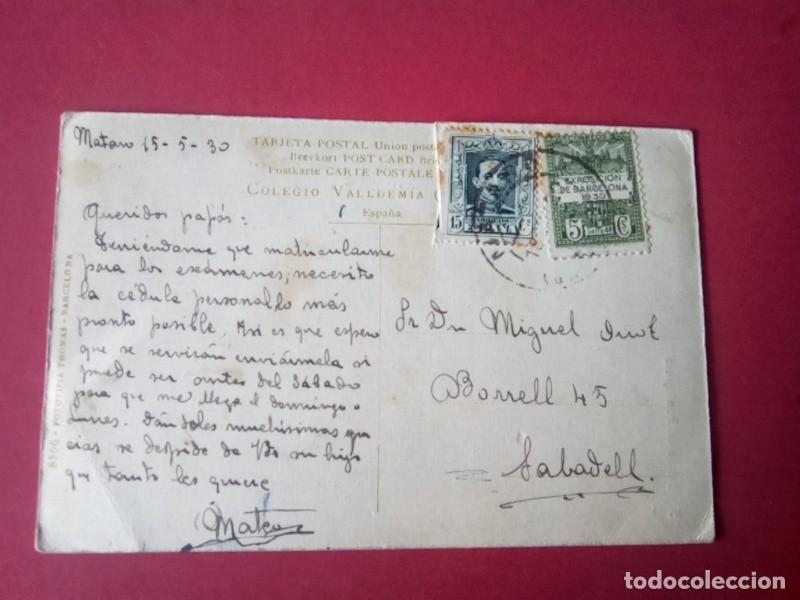 Mataro 15-5-30
TARJETA POSTAL Union post
Brevkort POST CARD Bri
Postkarte CARTE POSTALE
COLEGIO VALLDEMIA
España
Queridos papás:
Teniéndame que matricularme
para los exámenes, necesito
la cédula personal lo más
pronto posible. Así es que espero
que se servirán enviármela si
puede ser antes del Sábado
para que me llega el domingo o
Lunes. Dándoles muchísimas gra
cias se despide de Vds su hijo
que tanto les quiere
Mateo
8566 - FOTOTIPIA THOMAS - BARCELONA
15 Cs
EXPOSICIÓN
DE BARCELONA
1930
5 Cs
Sr Dn Miguel
Borrell 45
Sabadell.
todocoleccion